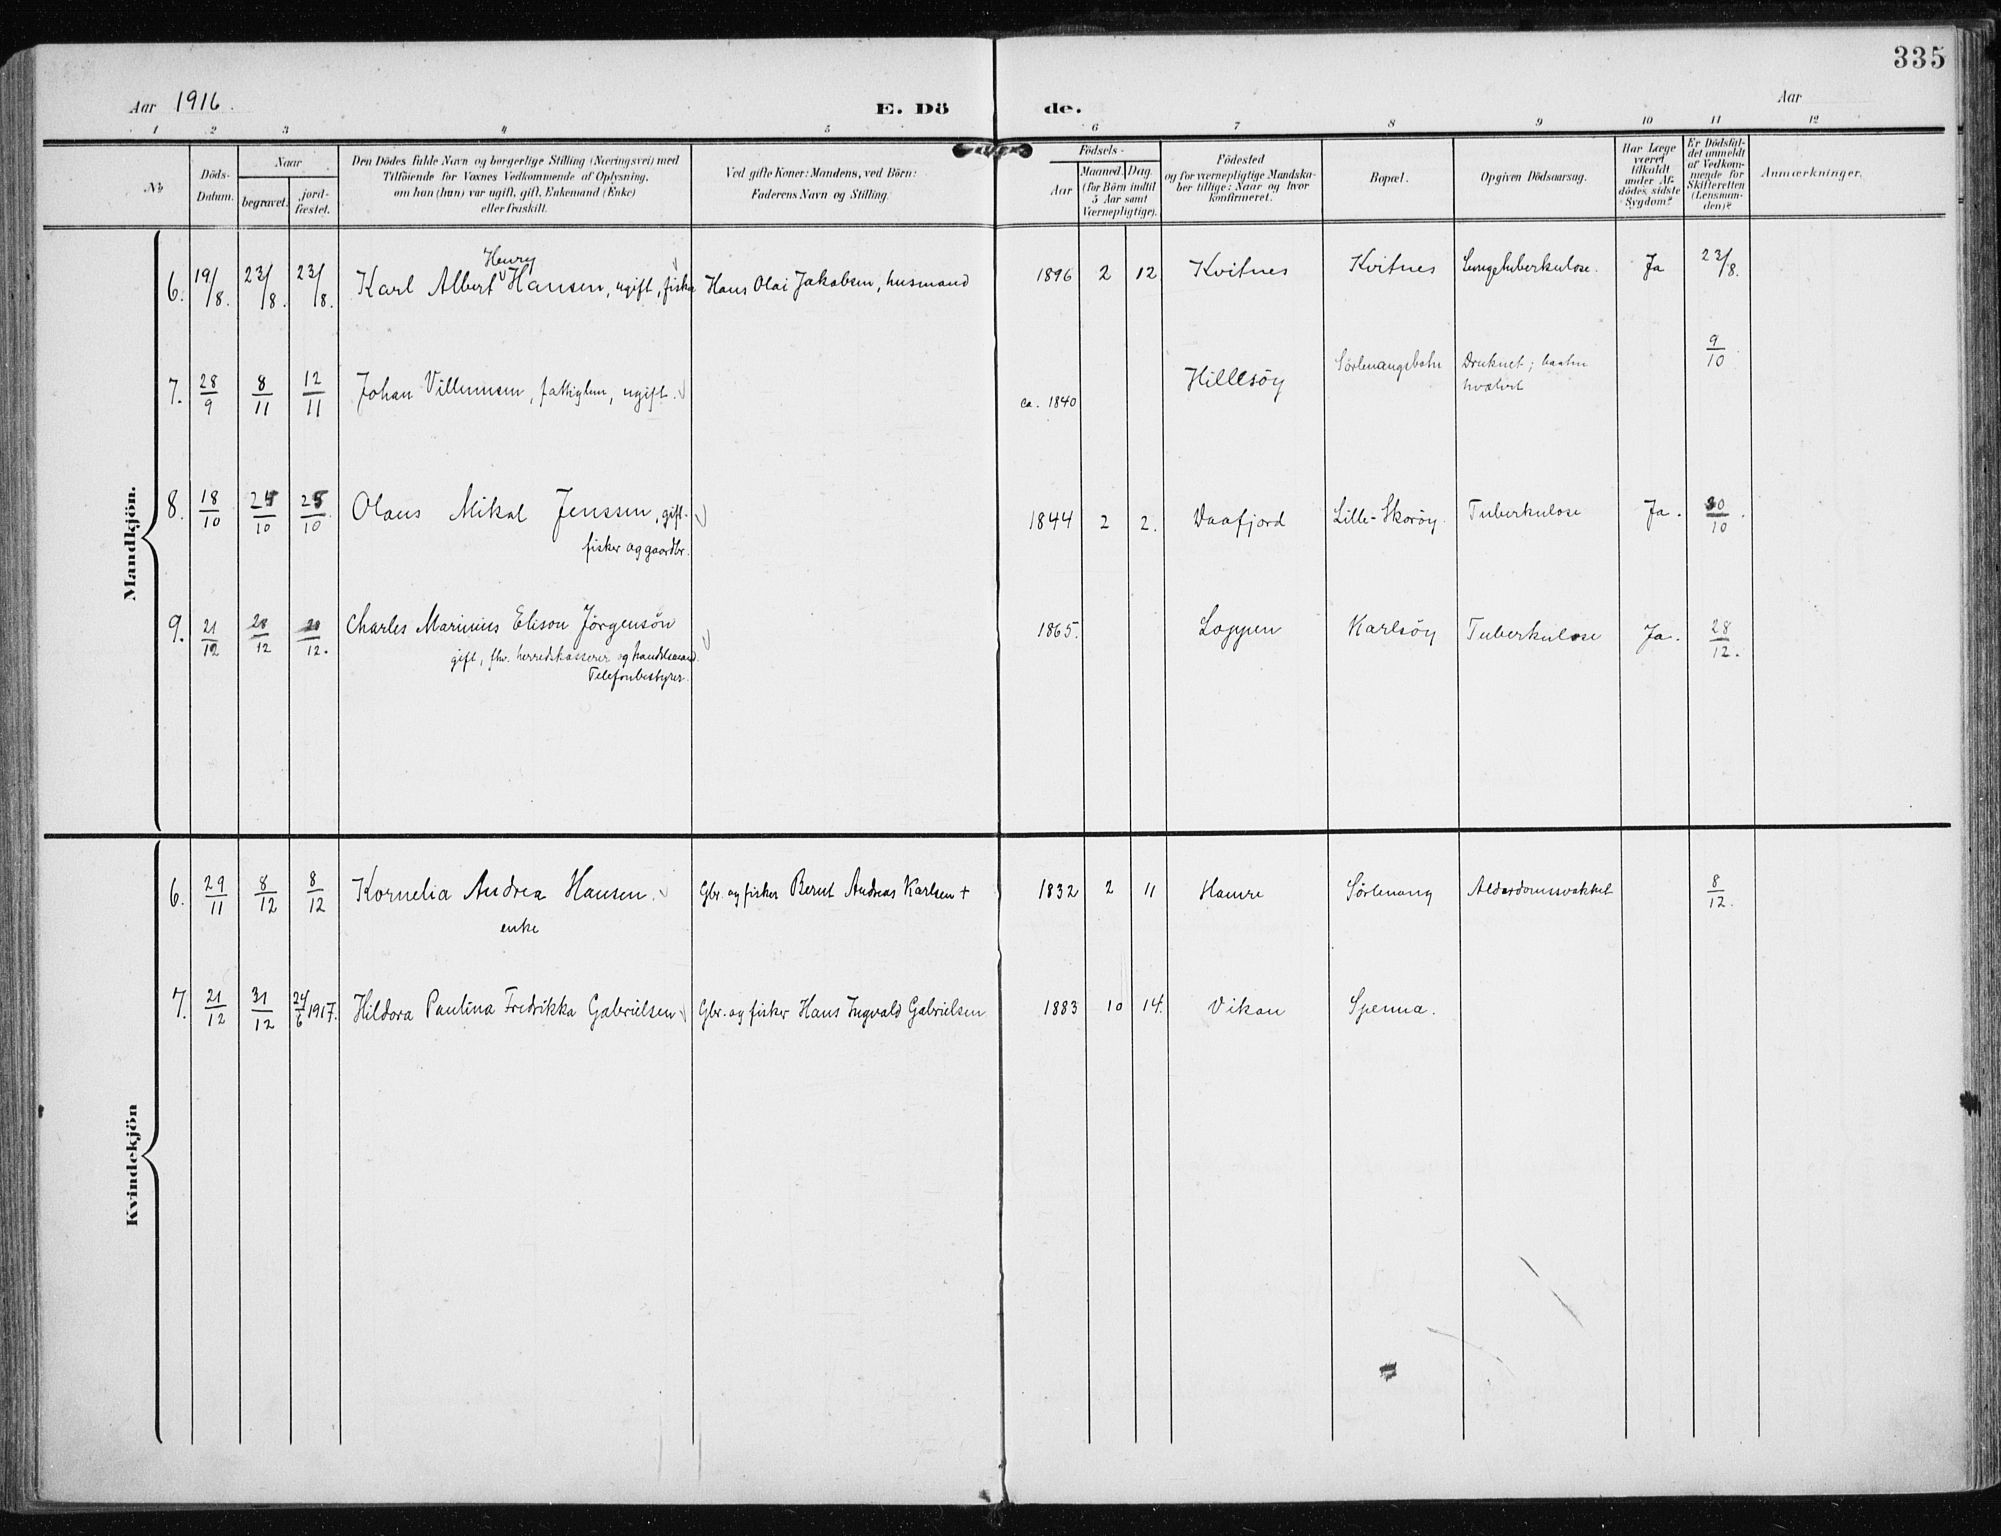 335
Aar 1916.
E. Döde.
Aar
1 2 3 4 5 6 7 8 9 10 11 12
No
Döds-Datum.
Naar
begravet.
jordfæstet.
Den Dödes fulde Navn og borgerlige Stilling (Næringsvei) med
Tilföiende for Voxnes Vedkommende af Oplysning,
om han (hun) var ugift, gift, Enkemand (Enke)
eller fraskilt.
Ved gifte Koner: Mandens, ved Börn:
Faderens Navn og Stilling.
Födsels-
Aar
Maaned. Dag.
(for Börn indtil
5 Aar samt
Værnepligtige).
Födested
og for værnepligtige Mandskaber tillige: Naar og hvor
konfirmeret.
Bopæl.
Opgiven Dödsaarsag.
Har Læge
været
tilkaldt
under Afdödes sidste
Sygdom?
Er Dödsfaldet anmeldt
af Vedkommende for
Skifteretten
(Lensmanden)?
Anmærkninger.
Mandkjön.
Henry
6. 19/8. 23/8. 23/8. Karl Albert Hansen, ugift, fisker Hans Olai Jakobsen, husmand 1896 2 12 Kvitnes Kvitnes Lungetuberkulose. Ja 23/8.
7. 28/9 8/11 12/11 Johan Villumsen, fattiglem, ugift. ca. 1840 Hillesöy Sörlenangsbotn Druknet; baaten
hvælvet 9/10.
8. 18/10 24/10 25/10 Olaus Mikal Jenssen, gift.
fisker og gaardbr. 1844 2 2. Daafjord Lille-Skoröy. Tuberkulose Ja. 30/10.
9. 21/12 28/12 28/12. Charles Marinius Elison Jörgensön
gift, fhv. herredskasserer og handelsmand.
Telefonbestyrer. 1865. Loppen Karlsöy Tuberkulose Ja. 28/12.
Kvindekjön
6. 29/11 8/12 8/12 Kornelia Andrea Hansen.
enke Gbr. og fisker Bernt Andreas Karlsen + 1832 2 11 Hamre Sörlenang Alderdomssvakhet 8/12.
7. 21/12 31/12 24/6 1917. Hildora Paulina Fredrikka Gabrielsen Gbr. og fisker Hans Ingvald Gabrielsen 1883 10 14. Vikan Spenna.